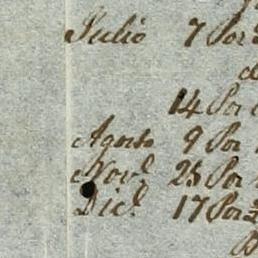 Julio 7 Por
d
14 Por
Agosto 9 Por
Nov.^e 25 Por
Dic.^e 17 Por